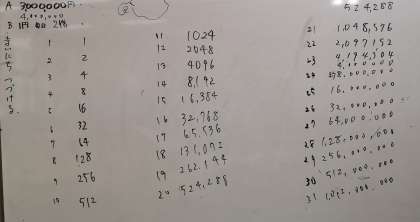 A 3,000,000円
4,000,000
B 1円 2倍
まいにちつづける
1 1
2 2
3 4
4 8
5 16
6 32
7 64
8 128
9 256
10 512
11 1024
12 2048
13 4096
14 8,192
15 16,384
16 32,768
17 65,536
18 131,072
19 262,144
20 524,288
524,288
21 1,048,576
22 2,097,152
23 4,194,304
4,000,000
24 8,000,000
25 16,000,000
26 32,000,000
27 64,000,000
28 128,000,000
29 256,000,000
30 512,000,000
31 1,012,000,000